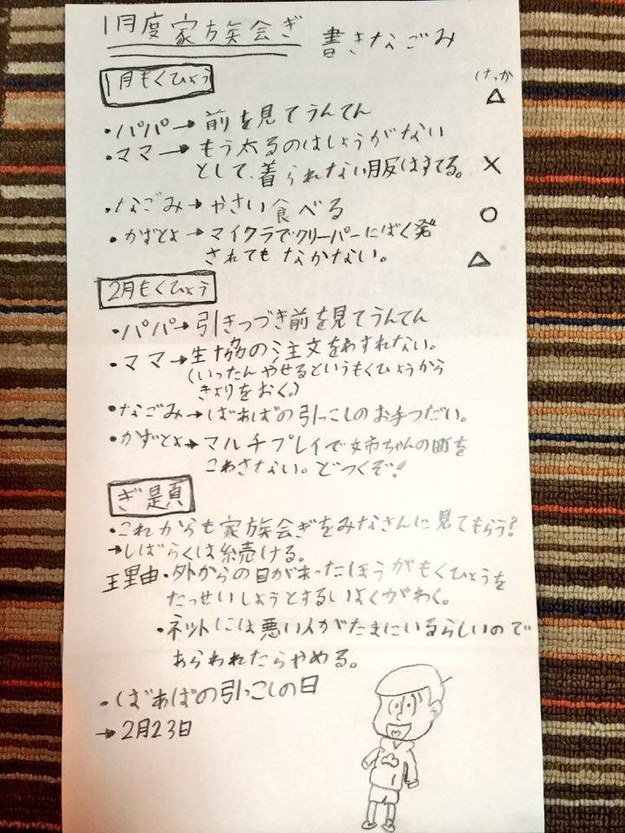 1月度 家族会ぎ 書きなごみ
1月もくひょう けっか
・パパ→前を見てうんてん △
・ママ→もう太るのはしょうがない
として、着られない服はすてる。 ×
・なごみ→やさい食べる ○
・かずとよ→マイクラでクリーパーにばく発
されてもなかない。 △
2月もくひょう
・パパ→引きつづき前を見てうんてん
・ママ→生協の注文をわすれない。
(いったんやせるというもくひょうから
きょりをおく。)
・なごみ→ばあばの引っこしのお手つだい。
・かずとよ→マルチプレイで姉ちゃんの町を
こわさない。どつくぞ!
ぎ題
・これからも家族会ぎをみなさんに見てもらう?
→しばらくは続ける。
理由・外からの目があったほうがもくひょうを
たっせいしようとするいよくがわく。
・ネットには悪い人がたまにいるらしいので
あらわれたらやめる。
・ばあばの引っこしの日
→2月23日